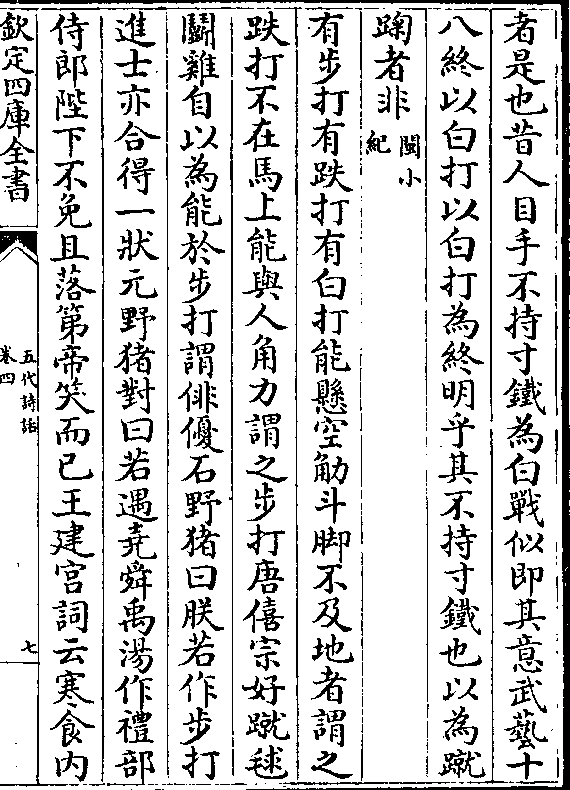 者是也昔人目手不持寸鐵為白戰似即其意武藝十
八終以白打以白打為終明乎其不持寸鐵也以為蹴
踘者非閩小紀
有步打有跌打有白打能懸空觔斗脚不及地者謂之
跌打不在馬上能與人角力謂之步打唐僖宗好蹴毬
鬭雞自以為能於步打謂俳優石野猪曰朕若作步打
進士亦合得一狀元野猪對曰若遇堯舜禹湯作禮部
侍郎陛下不免且落第帝笑而已王建宮詞云寒食内
欽定四庫全書
五代詩話
卷四
七